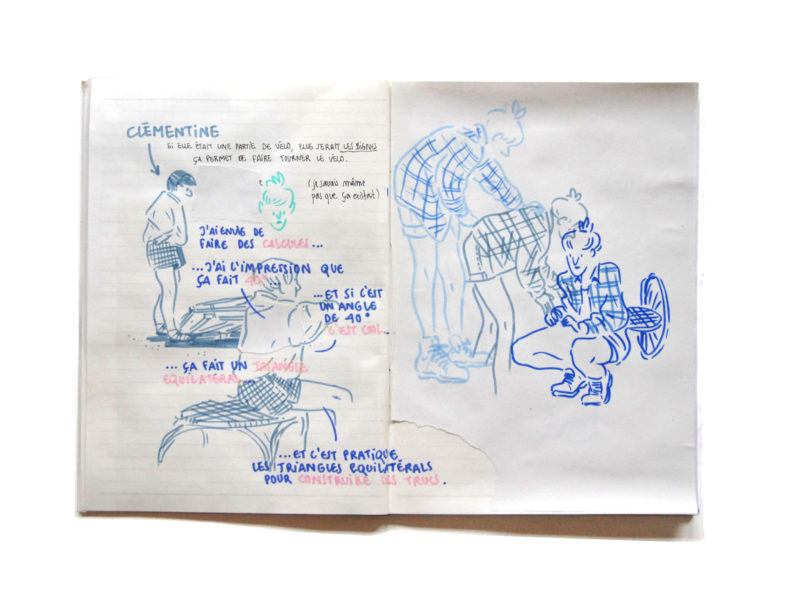 CLÉMENTINE
SI ELLE ÉTAIT UNE PARTIE DE VÉLO, ELLE SERAIT LES
ÇA PERMET DE FAIRE TOURNER LE VÉLO.
(je savais même
pas que ça existait)
J'AI ENVIE DE
FAIRE DES CALCULES...
...J'AI L'IMPRESSION QUE
ÇA FAIT 40° ...
...ET SI C'EST
UN ANGLE
DE 40°
C'EST COOL...
... ÇA FAIT UN TRIANGLE
EQUILATERAL...
...ET C'EST PRATIQUE
LES TRIANGLES EQUILITÉRALS
POUR CONSTRUIRE DES TRUCS.